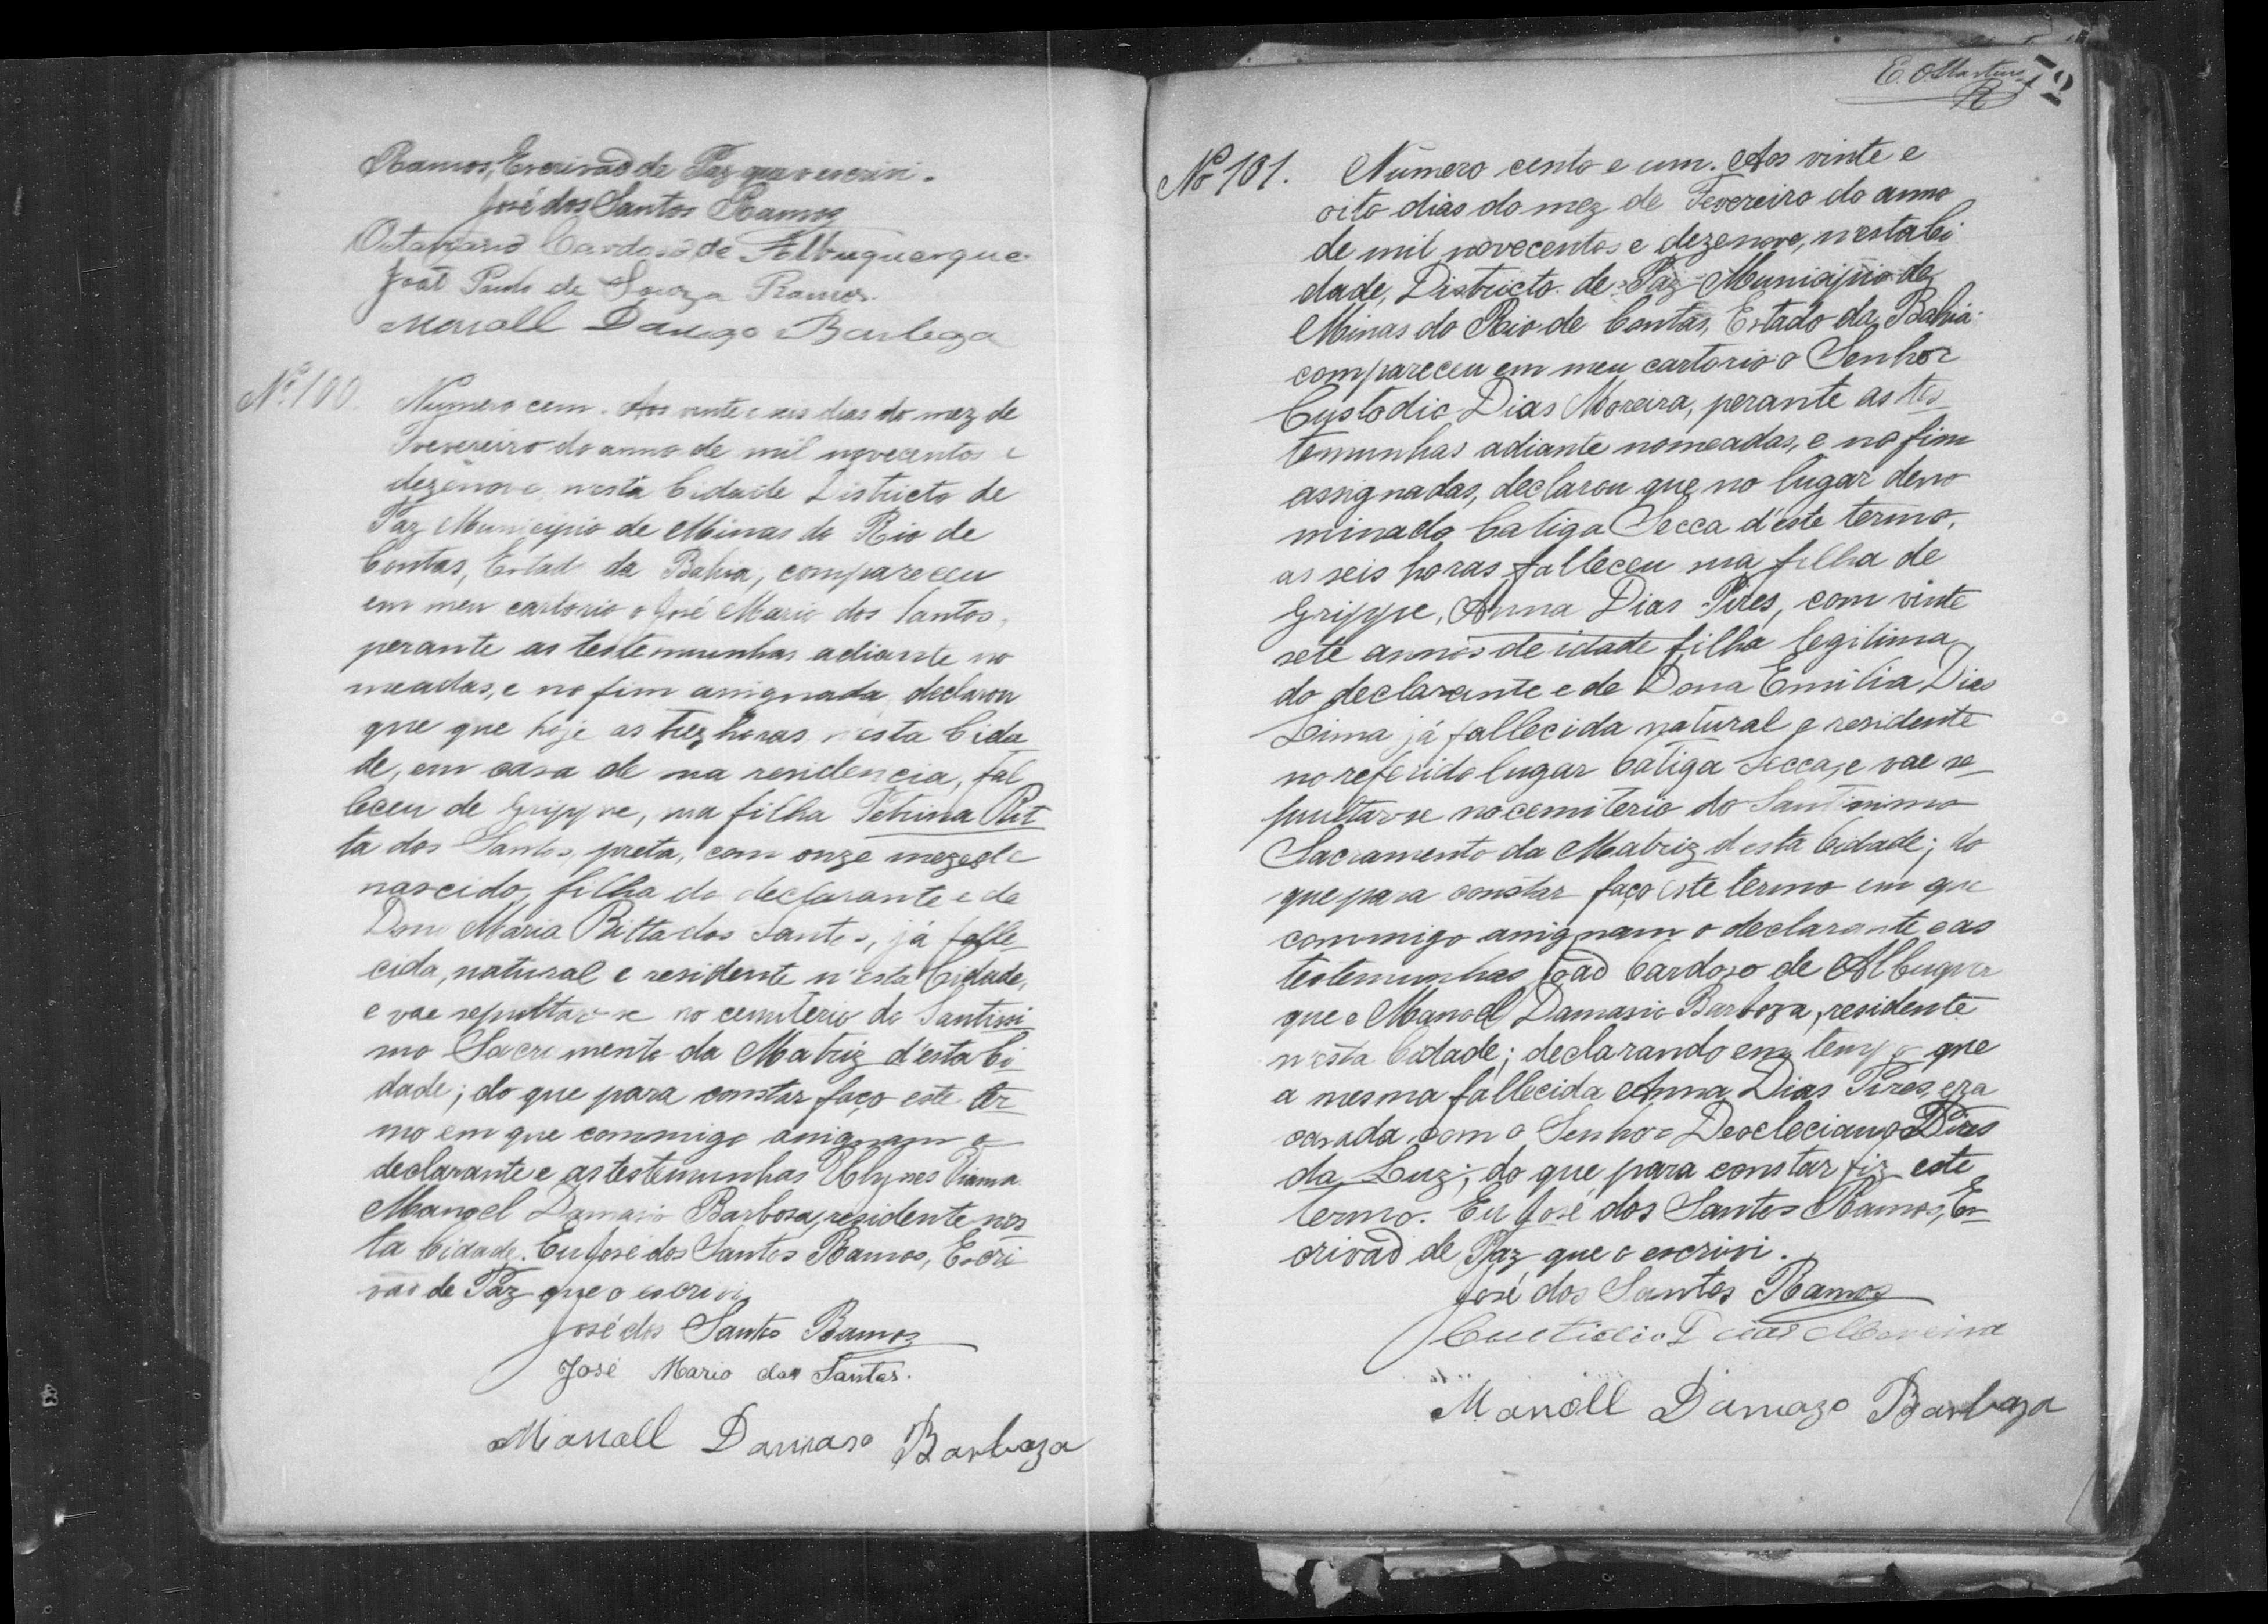 Ramos, Escrivaõ de Paz que o escrivi.
José dos Santos Ramos
Octaviano Cardoso de Albuquerque
José Paulo de Souza Ramos
Manoell Barboza
Nº 100. Numero cem. Aos vinte e seis dias do mez de
Fevereiro do anno de mil novecentos e
dezenove, nesta Cidade Districto de
Paz Municipio de Minas do Rio de
Contas, Estado da Bahia, compareceu
em meu cartorio o José Mario dos Santos,
perante as testemunhas adiante no
meadas, e no fim assignada, declarou
que que hoje as trez horas nesta Cida
de, em casa de sua residencia, fal
leceu de Grippe, sua filha Petrina Rit
ta dos Santos, preta, com onze mezes de
nascido, filha do declarante e de
Dona Maria Ritta dos Santos, já falle
cida, natural e residente n'esta Cidade,
e vae sepultar-se no cemiterio do Santissi
mo Sacramento da Matriz d'esta Ci
dade; do que para constar faço este ter
mo em que commigo assignam o
declarante e as testemunhas Ulysses Vianna
Manoel Damasio Barbosa, residente nes
ta Cidade. Eu José dos Santos Ramos, Escri
vão de Paz que o escrivi
José dos Santos Ramos
José Mario dos Santos.
Manoell Damaso Barboza
E. O. Martins
72
Nº 101. Número cento e um. Aos vinte e
oito dias do mez de Fevereiro do anno
de mil novecentos e dezenove, nesta Ci
dade, Districto de Paz Municipio de
Minas do Rio de Contas, Estado da Bahia
compareceu em meu cartorio o Senhor
Custodio Dias Moreira, perante as tes
temunhas adiante nomeadas, e no fim
assignadas, declarou que no lugar deno
minado Catiga Secca d'este termo,
as seis horas falleceu sua filha de
Grippe, Anna Dias Pires, com vinte
sete annos de idade filha legitima
do declarante e de Dona Emilia Dias
Lima já fallecida natural e residente
no referido lugar Catiga Secca, e vae se
pultar-se no cemiterio do Santissimo
Sacramento da Matriz desta Cidade; do
que para constar faço este termo em que
commigo assignam o declarante e as
testemunhas Joaõ Cardoso de Albuquer
que e Manoel Damasio Barboza, residente
n'esta Cidade; declarando em tempo que
a mesma fallecida Anna Dias Pires, era
casada com o Senhor Deocleciano Pires
da Luz; do que para constar fiz este
termo. Eu José dos Santos Ramos, Es
crivaõ de Paz que o escrivi.
José dos Santos Ramos
Custidio Dias Moreira
Manoell Damazo Barboza